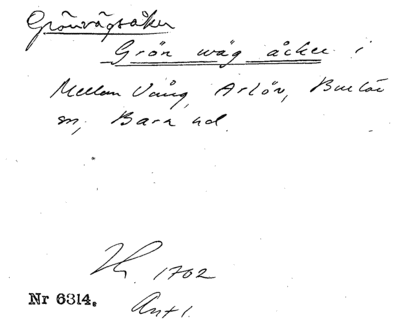 Grönvägsåker
Grön wäg åcker i
Mellan Vång, Arlöv, Burlöv
sn, Bara hd.
1702
Nr 6314. Ant 1.